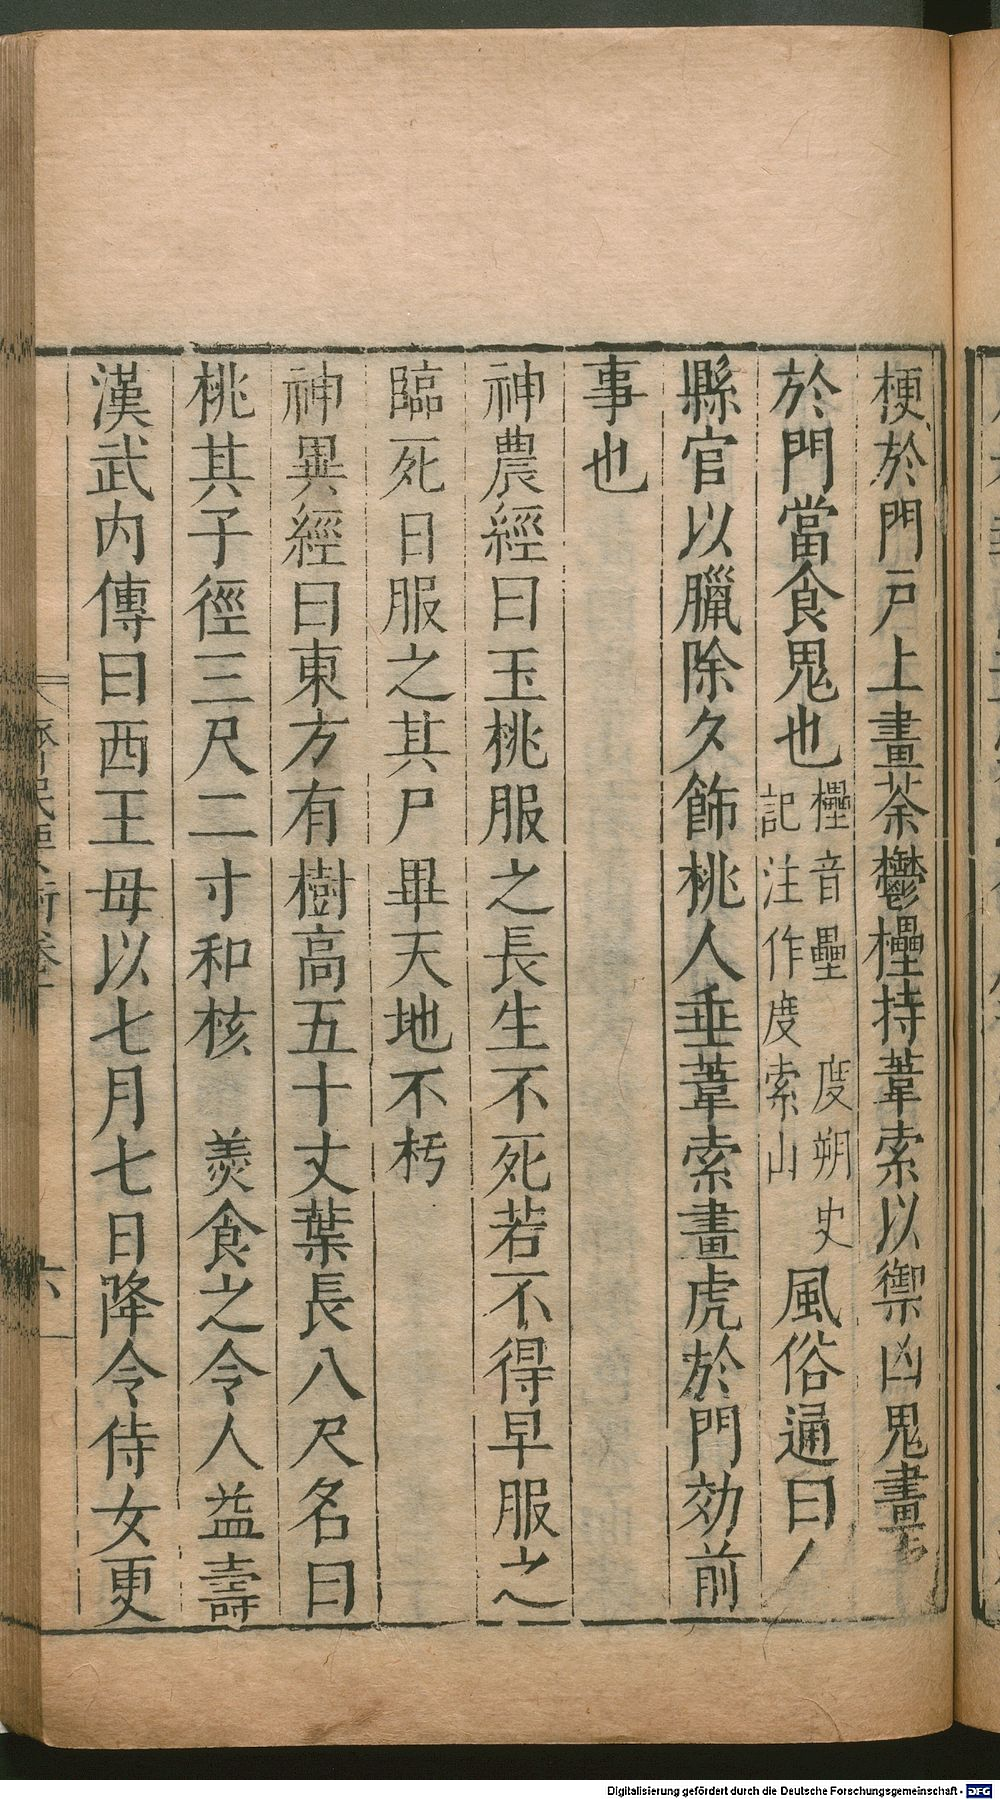 梗於門戶上畫荼鬱櫑持葦索以禦凶鬼畫
於門當食鬼也櫑音壘 度朔史
記注作度索山風俗通曰
縣官以臘除夕飾桃人垂葦索畫虎於門効前
事也
神農經曰玉桃服之長生不死若不得早服之
臨死日服之其尸畢天地不朽
神異經曰東方有樹高五十丈葉長八尺名曰
桃其子徑三尺二寸和核 羮食之令人益壽
漢武内傳曰西王母以七月七日降令侍女更
六
Digitalisierung gefördert durch die Deutsche Forschungsgemeinschaft - DFG